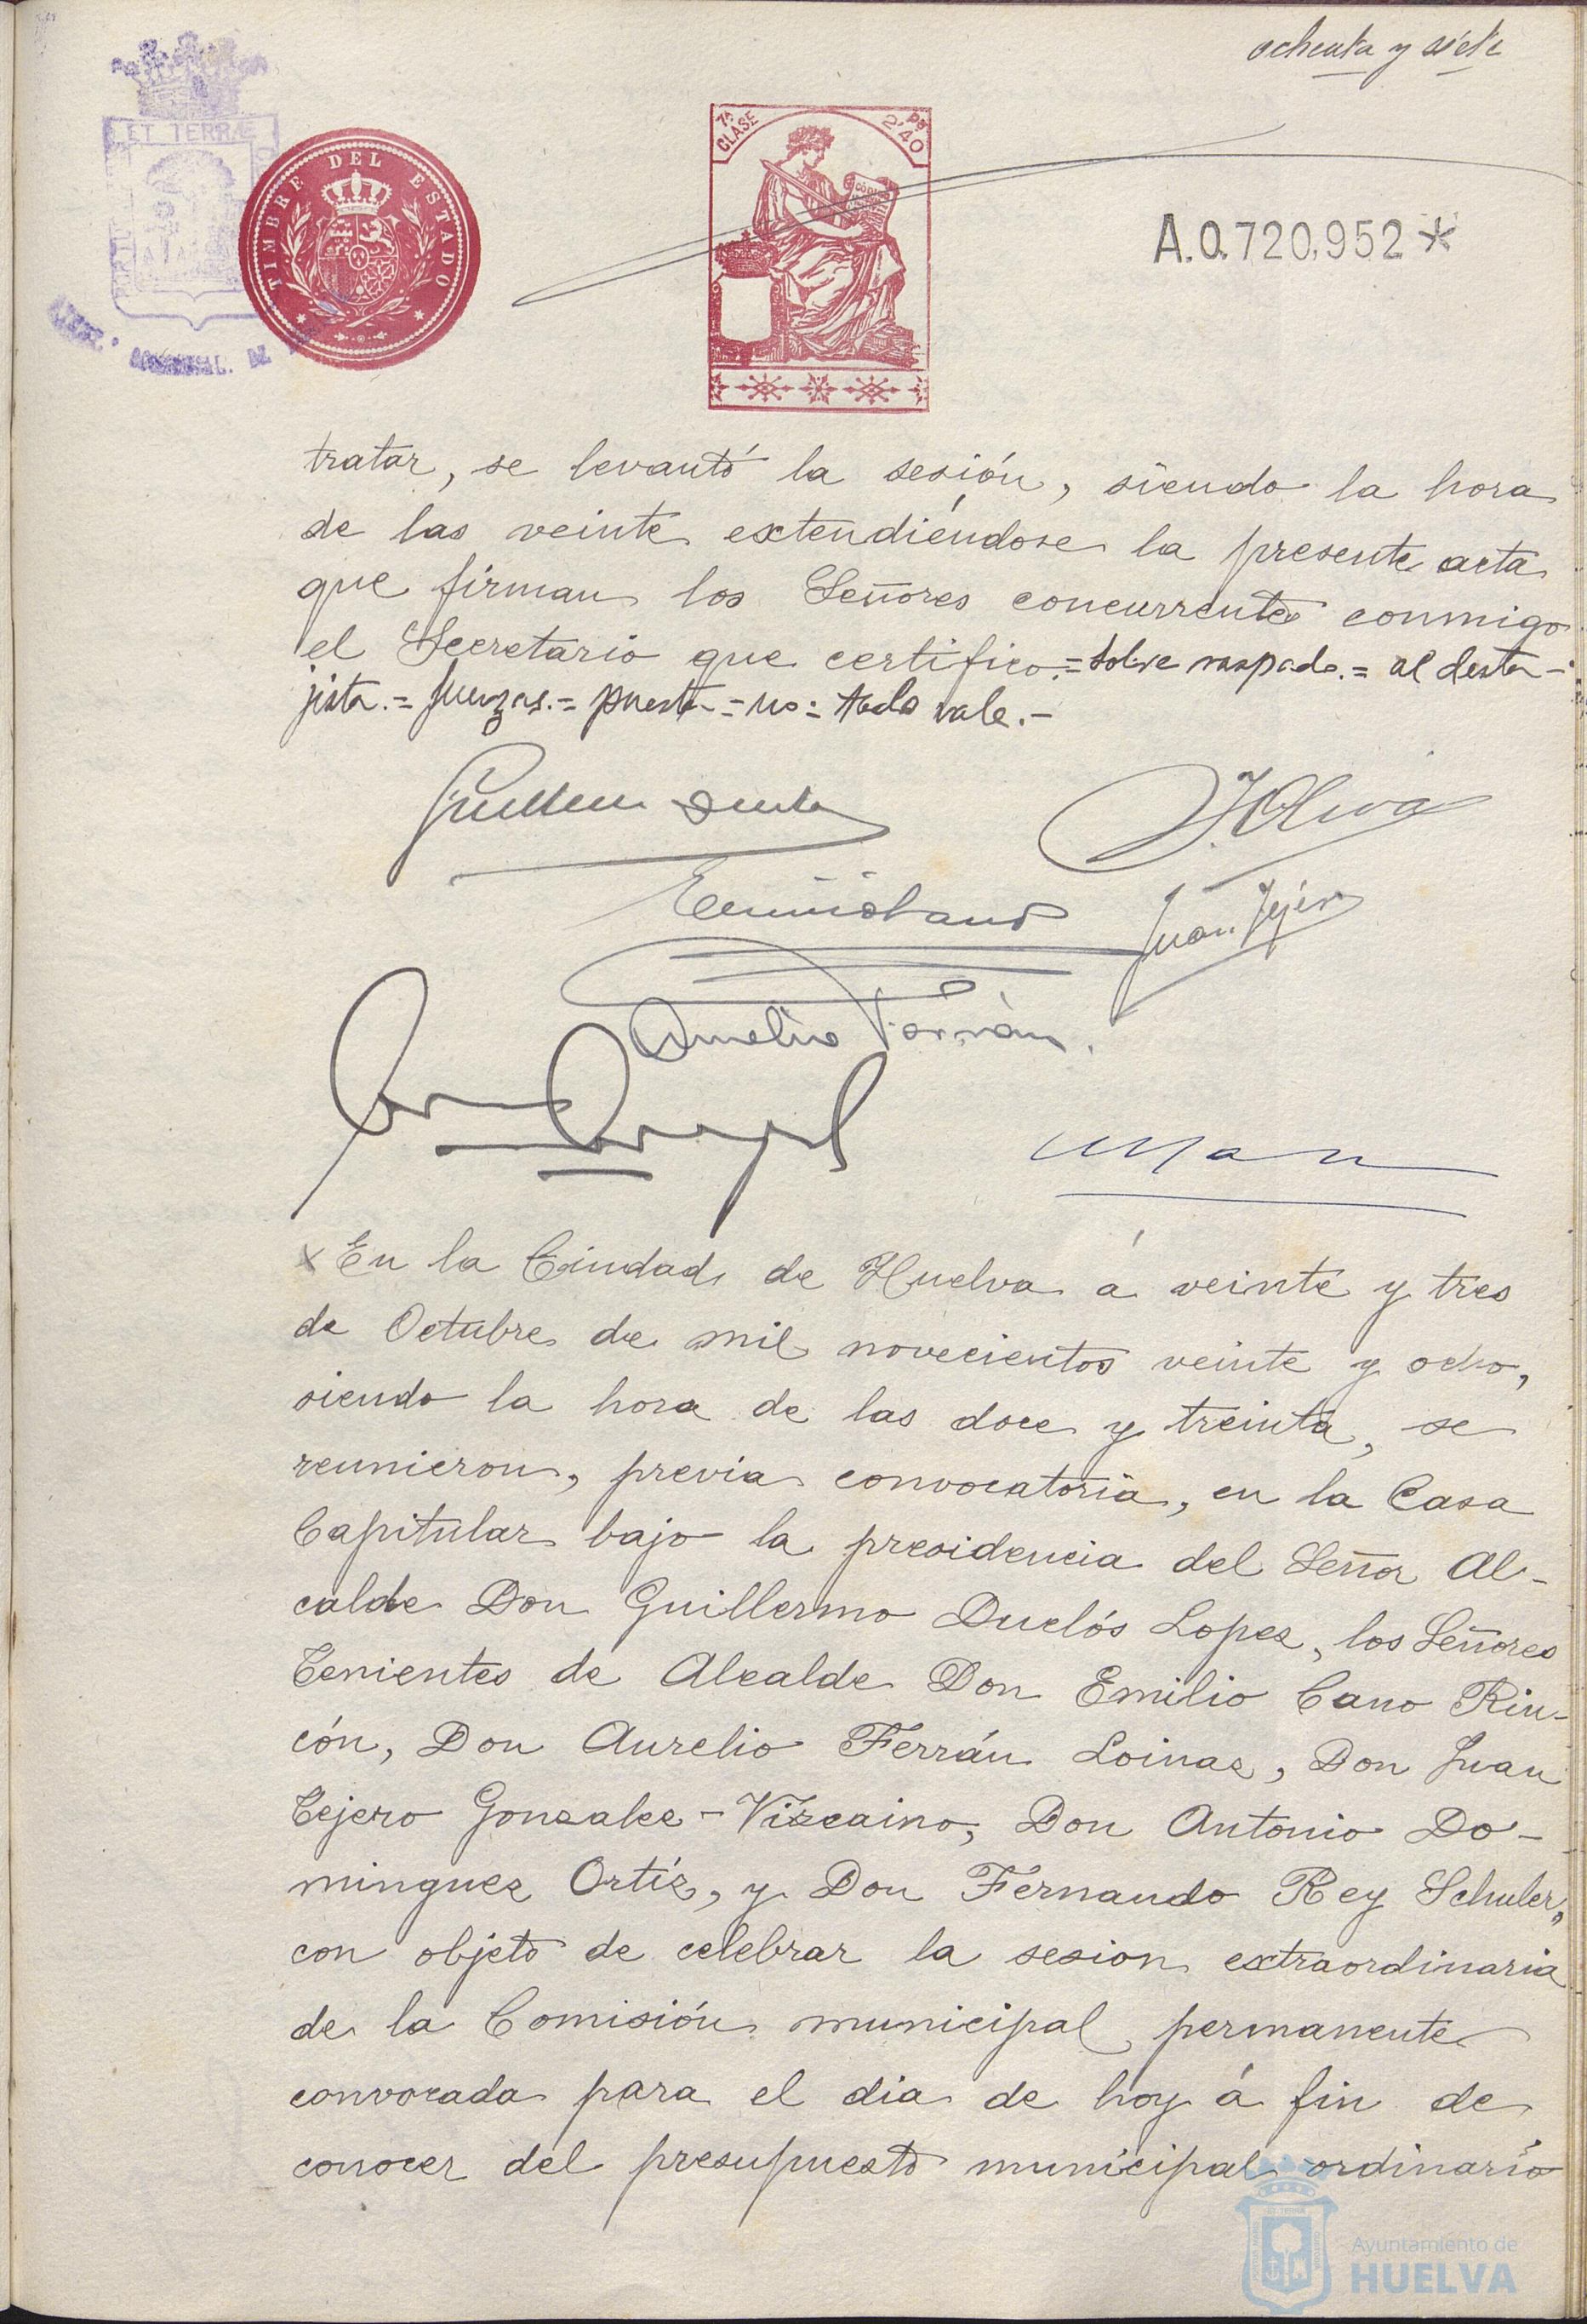 ochenta y siete
ET TERRÆ
TIMBRE DEL ESTADO
7ª CLASE
Ps 2'40
A.0.720,952*
tratar, se levantó la sesión, siendo la hora
de las veinte extendiéndose la presente acta
que firman los Señores concurrentes conmigo
el Secretario que certifico.=sobre raspado.= al desta-
jista.= fuerzas.= puesta = no = todo vale.-
J. Oliva
Juan Tejero
Aurelio Ferrán.
x En la Ciudad de Huelva á veinte y tres
de Octubre de mil novecientos veinte y ocho,
siendo la hora de las doce y treinta, se
reunieron, previa convocatoria, en la Casa
Capitular bajo la presidencia del Señor Al-
calde Don Guillermo Duclós Lopez, los Señores
Tenientes de Alcalde Don Emilio Cano Rin-
cón, Don Aurelio Ferrán Loinaz, Don Juan
Tejero Gonzalez-Vizcaino, Don Antonio Do-
minguez Ortíz, y Don Fernando Rey Schuler,
con objeto de celebrar la sesion extraordinaria
de la Comisión municipal permanente
convocada para el dia de hoy á fin de
conocer del presupuesto municipal ordinario
Ayuntamiento de
HUELVA